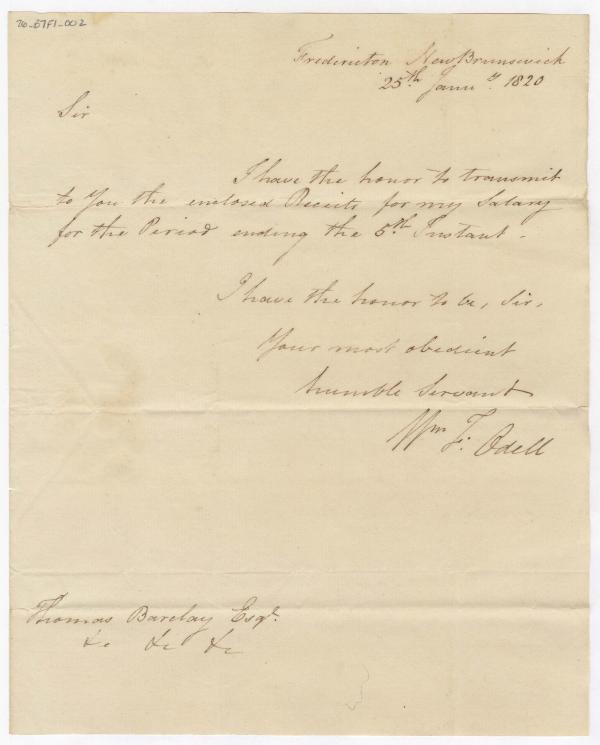 Fredericton New Brunswick
25th Janu.y 1820
Sir
I have the honor to transmit
to You the enclosed Receits for my Salary
for the Period ending the 5th Instant -
I have the honor to be, Sir,
Your most obedient
humble Servant
Wm F. Odell
Thomas Barclay Esqr.
&c &c &c